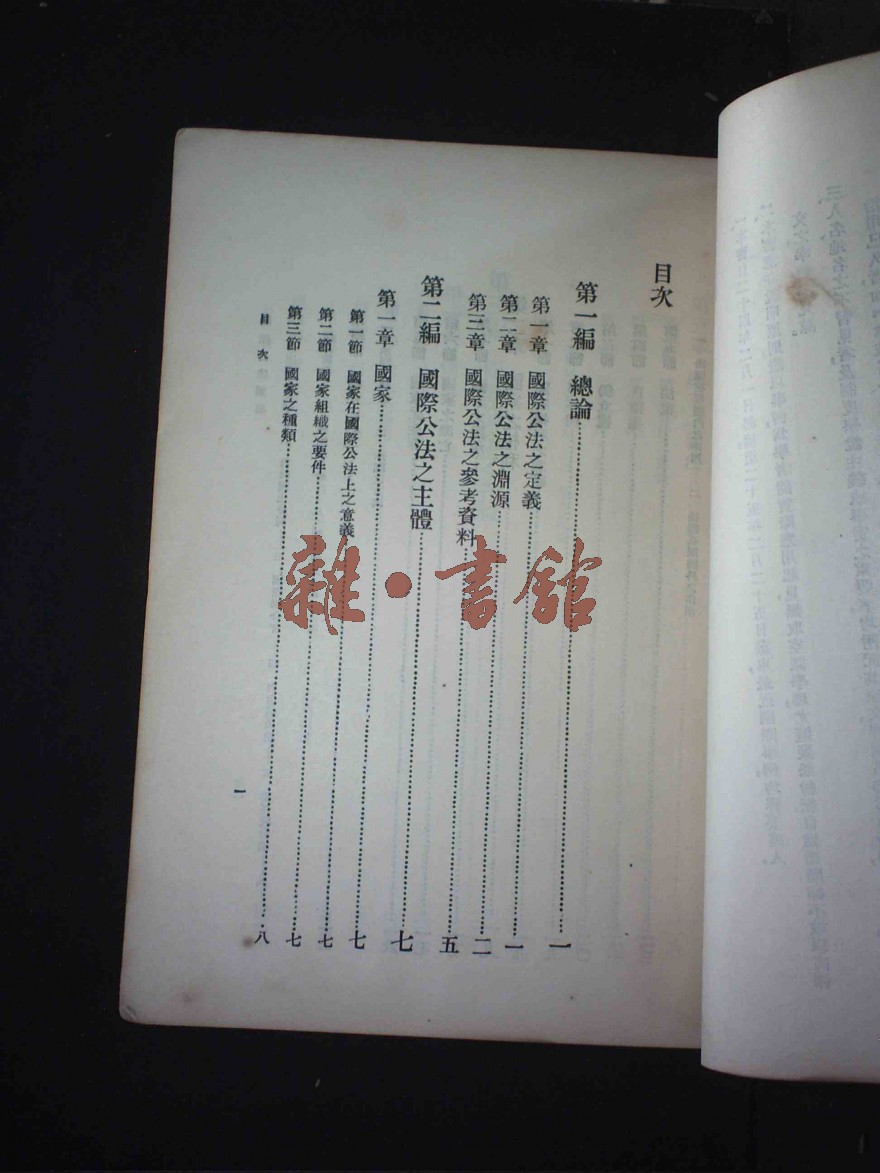 目次
第一編 總論……一
第一章 國際公法之定義……一
第二章 國際公法之淵源……二
第三章 國際公法之參考資料……五
第二編 國際公法之主體……七
第一章 國家……七
第一節 國家在國際公法上之意義……七
第二節 國家組織之要件……七
第三節 國家之種類……八
目次
一
雜·書館